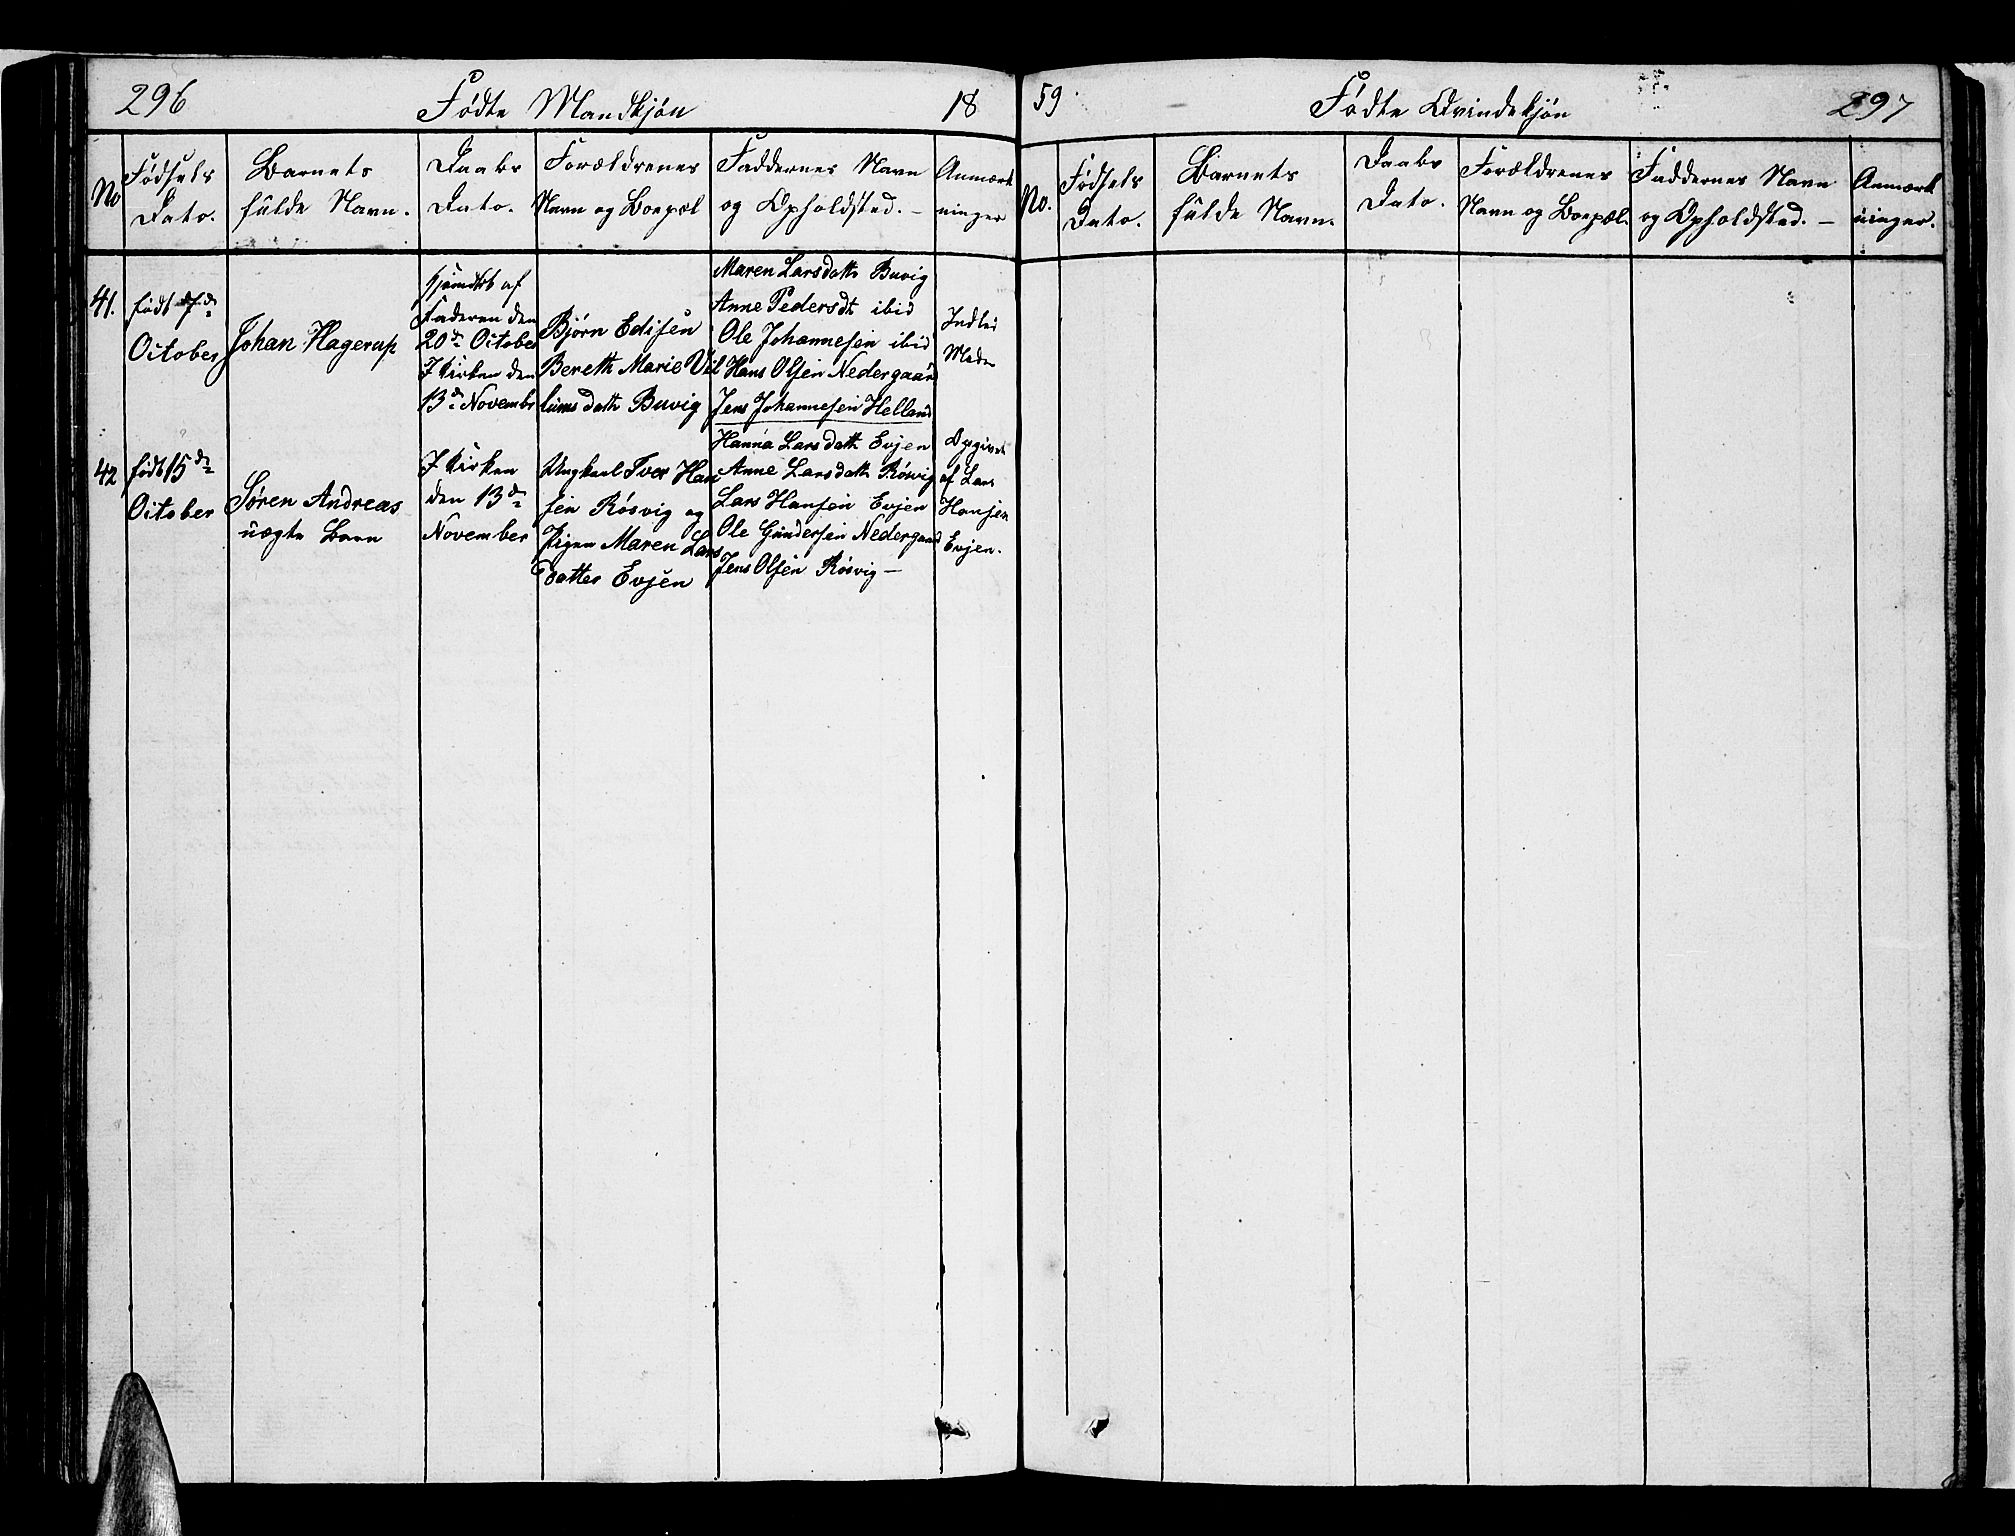 296 Fødte Mandkjøn 18
No
Fødsels
Dato.
Barnets
fulde Navn.
Daabs
Dato.
Forældrenes
Navn og Boepæl
Faddernes Navn
og Opholdsted. –
Anmærk
ninger
41.
født 7de
October
Johan Hagerup
hjemdøbt af
Faderen den
20de October
I Kirken den
13de Novembr
Bjørn Edisen
Bereth Marie Vil
lumsdath Buvig
Maren Larsdatte Buvig
Anne Pedersdt ibid
Ole Johannesen ibid
Hans Olsen Nedergaard
Jens Johannesen Helland
42
født 15de
October
Søren Andreas
uægte Barn
I Kirken
den 13de
November
Ungkarl Iver Han
sen Røsvig og
Pigen Maren Lars
datter Evjen
Hanna Larsdath Evjen
Anne Larsdath Røsvig
Lars Hansen Evjen
Ole Gundersen Nedergaard
Jens Olsen Røsvig –
Opgivet
af Lars
Hansen
Evjen.
59 Fødte Qvindekjøn 297
No.
Fødsels
Dato.
Barnets
fulde Navn.
Daabs
Dato.
Forældrenes
Navn og Boepæl.
Faddernes Navn
og Opholdsted. –
Anmærk
ninger.